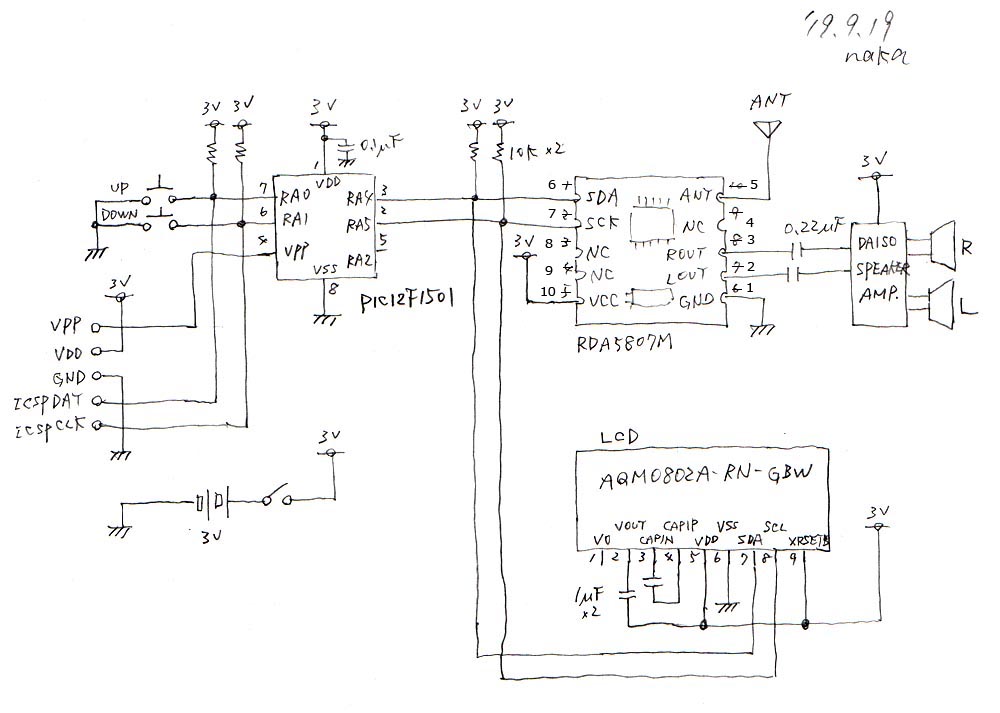 '19.9.19
naka
3V 3V 3V 3V 3V
ANT
0.1μF
10K×2
3V
UP
DOWN
7 RA0
6 RA1
4 VPP
1 VDD
RA4 3
RA5 2
RA2 5
VSS
8
PIC12F1501
6 SDA
7 SCK
8 NC
9 NC
10 VCC
3V
ANT 5
NC 4
ROUT 3
LOUT 2
GND 1
RDA5807M
0.22μF
DAISO
SPEAKER
AMP.
R
L
3V
VPP
VDD
GND
ICSPDAT
ICSPCLK
3V
3V
LCD
AQM0802A-RN-GBW
VOUT CAPIP VSS SCL
V0 CAPIN VDD SDA XRSETB
1 2 3 4 5 6 7 8 9
3V
1μF
×2